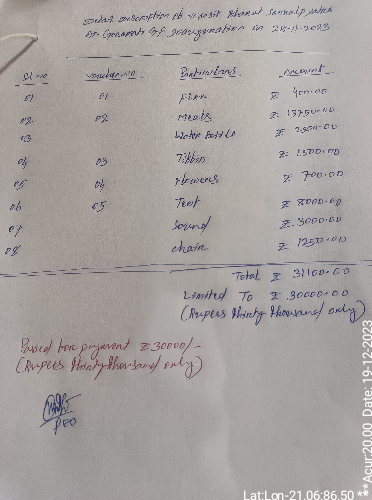 Bharat Sankalp yatra
G.P. on 28-11-2023
Sl no voucher no Particulars Amount
01 01 Flex ₹ 400.00
02 02 Meals ₹ 13750.00
03 Water Bottle ₹ 2500.00
04 03 Tiffin ₹ 1500.00
05 04 Flowers ₹ 700.00
06 05 Tent ₹ 8000.00
07 Sound ₹ 3000.00
08 chair ₹ 1250.00
Total ₹ 31100.00
Limited To ₹ 30000.00
(Rupees thirty thousand only)
Passed for payment ₹ 30000/-
(Rupees thirty thousand only)
PEO
Lat:Lon-21.06:86.50 ***Acur:20.00 Date: 19-12-2023